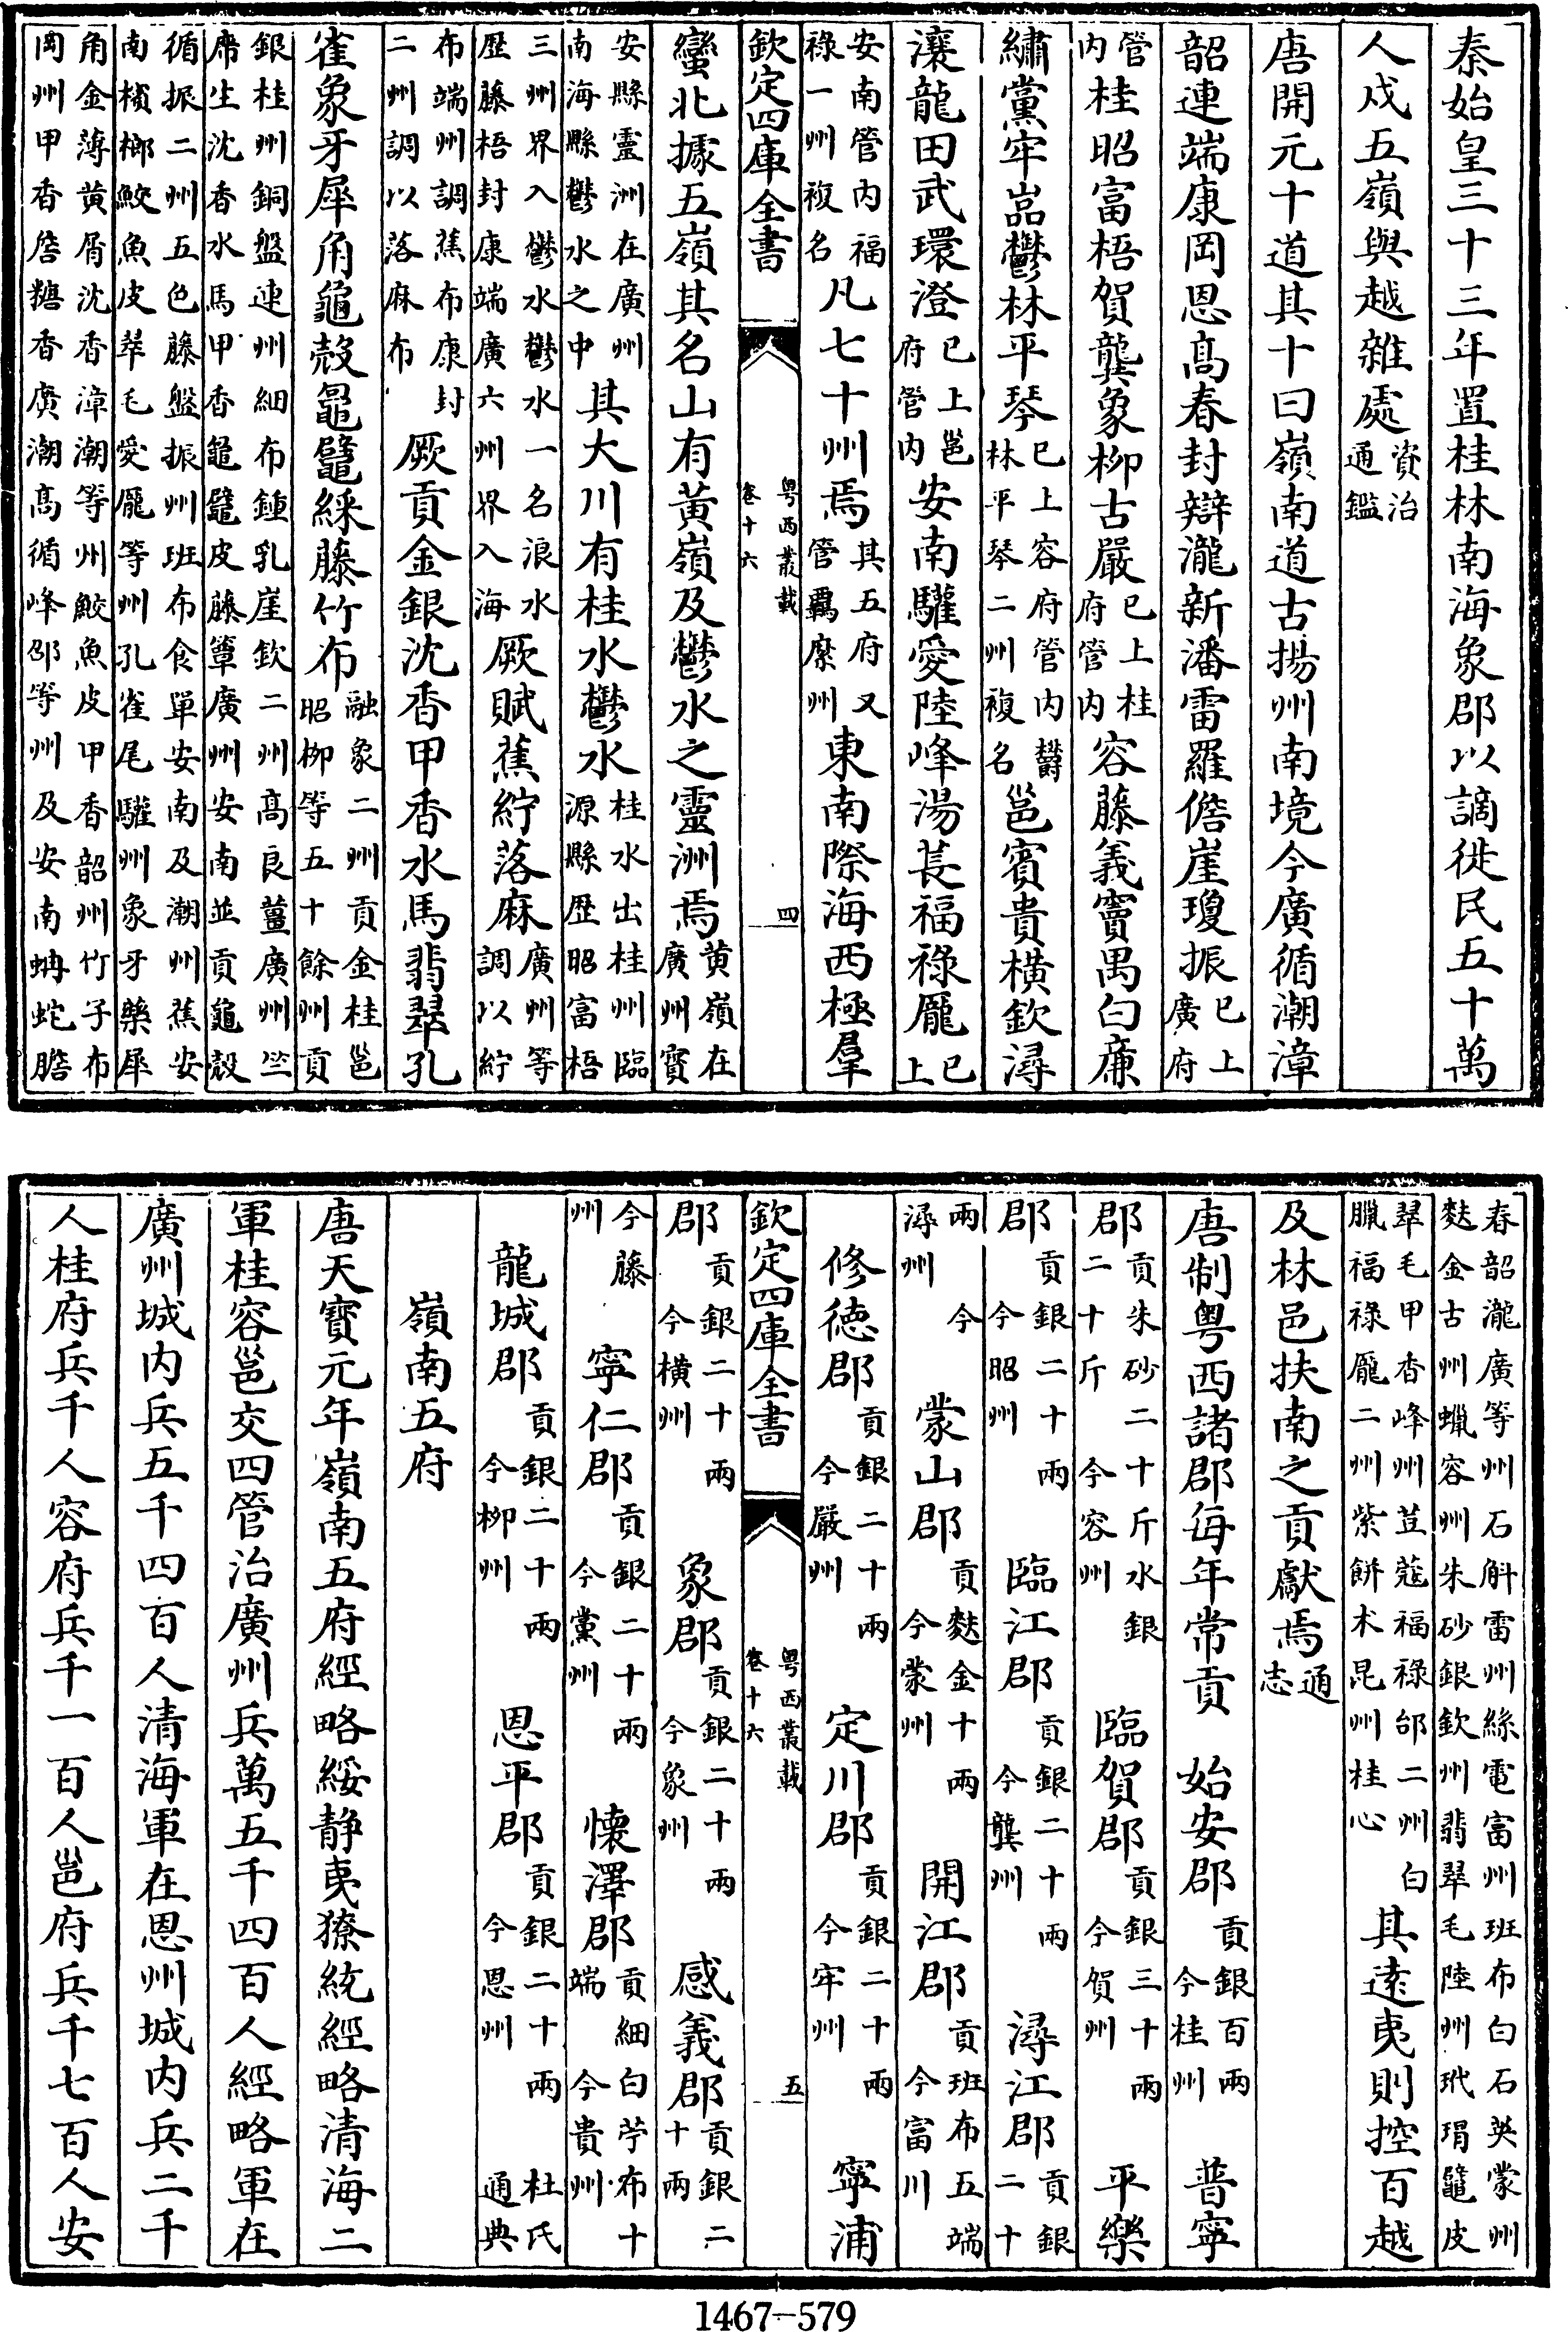 秦始皇三十三年置桂林南海象郡以謫徙民五十萬
人戍五嶺與越雜處資治通鑑
唐開元十道其十曰嶺南道古揚州南境今廣循潮漳
韶連端康岡恩髙春封辯瀧新潘雷羅儋崖瓊振已上廣府
管内桂昭富梧賀龔象柳古嚴已上桂府管内容藤義竇禺白亷
繡黨牢嵓鬱林平琴已上容府管内欎林平琴二州複名邕賓貴橫欽潯
瀼龍田武環澄已上邕府管内安南驩愛陸峰湯萇福祿龎已上
安南管内福祿一州複名凡七十州焉其五府又管羈縻州東南際海西極羣
欽定四庫全書 粤西叢載 卷十六 四
蠻北據五嶺其名山有黄嶺及鬱水之靈洲焉黄嶺在廣州寳
安縣靈洲在廣州南海縣鬱水之中其大川有桂水鬱水桂水出桂州臨源縣歴昭富梧
三州界入鬱水鬱水一名浪水歴藤梧封康端廣六州界入海厥賦蕉紵落麻廣州等調以紵
布端州調蕉布康封二州調以落麻布厥貢金銀沈香甲香水馬翡翠孔
雀象牙犀角龜殻鼂鼊綵藤竹布融象二州貢金桂邕昭柳等五十餘州貢
銀桂州銅盤連州細布鍾乳崖欽二州髙良薑廣州竺席生沈香水馬甲香鼂鼊皮藤簟廣州安南並貢龜殻
循振二州五色藤盤振州班布食單安南及潮州蕉安南檳榔鮫魚皮翠毛愛龎等州孔雀尾驩州象牙藥犀
角金薄黄屑沈香漳潮等州鮫魚皮甲香韶州竹子布岡州甲香詹糖香廣潮髙循峰邵等州及安南蚺蛇膽
春韶瀧廣等州石斛雷州絲電富州班布白石英蒙州麩金古州蠟容州朱砂銀欽州翡翠毛陸州玳瑁鼊皮
翠毛甲香峰州荳蔻福祿邰二州白臘福祿龎二州紫餅术昆州桂心其逺夷則控百越
及林邑扶南之貢獻焉通志
唐制粤西諸郡每年常貢 始安郡貢銀百兩今桂州 普寧
郡貢朱砂二十斤水銀二十斤今容州 臨賀郡貢銀三十兩今賀州 平樂
郡貢銀二十兩今昭州 臨江郡貢銀二十兩今龔州 潯江郡貢銀二十
兩今潯州 蒙山郡貢麩金十兩今蒙州 開江郡貢班布五端今富川
修徳郡貢銀二十兩今嚴州 定川郡貢銀二十兩今牢州 寧浦
欽定四庫全書 粤西叢載 卷十六 五
郡貢銀二十兩今横州 象郡貢銀二十兩今象州 感義郡貢銀二十兩
今藤州 寧仁郡貢銀二十兩今黨州 懐澤郡貢細白苧布十端今貴州
龍城郡貢銀二十兩今柳州 恩平郡貢銀二十兩今恩州 杜氏通典
嶺南五府
唐天寳元年嶺南五府經略綏静夷獠統經略清海二
軍桂容邕交四管治廣州兵萬五千四百人經略軍在
廣州城内兵五千四百人清海軍在恩州城内兵二千
人桂府兵千人容府兵千一百人邕府兵千七百人安
1467-579